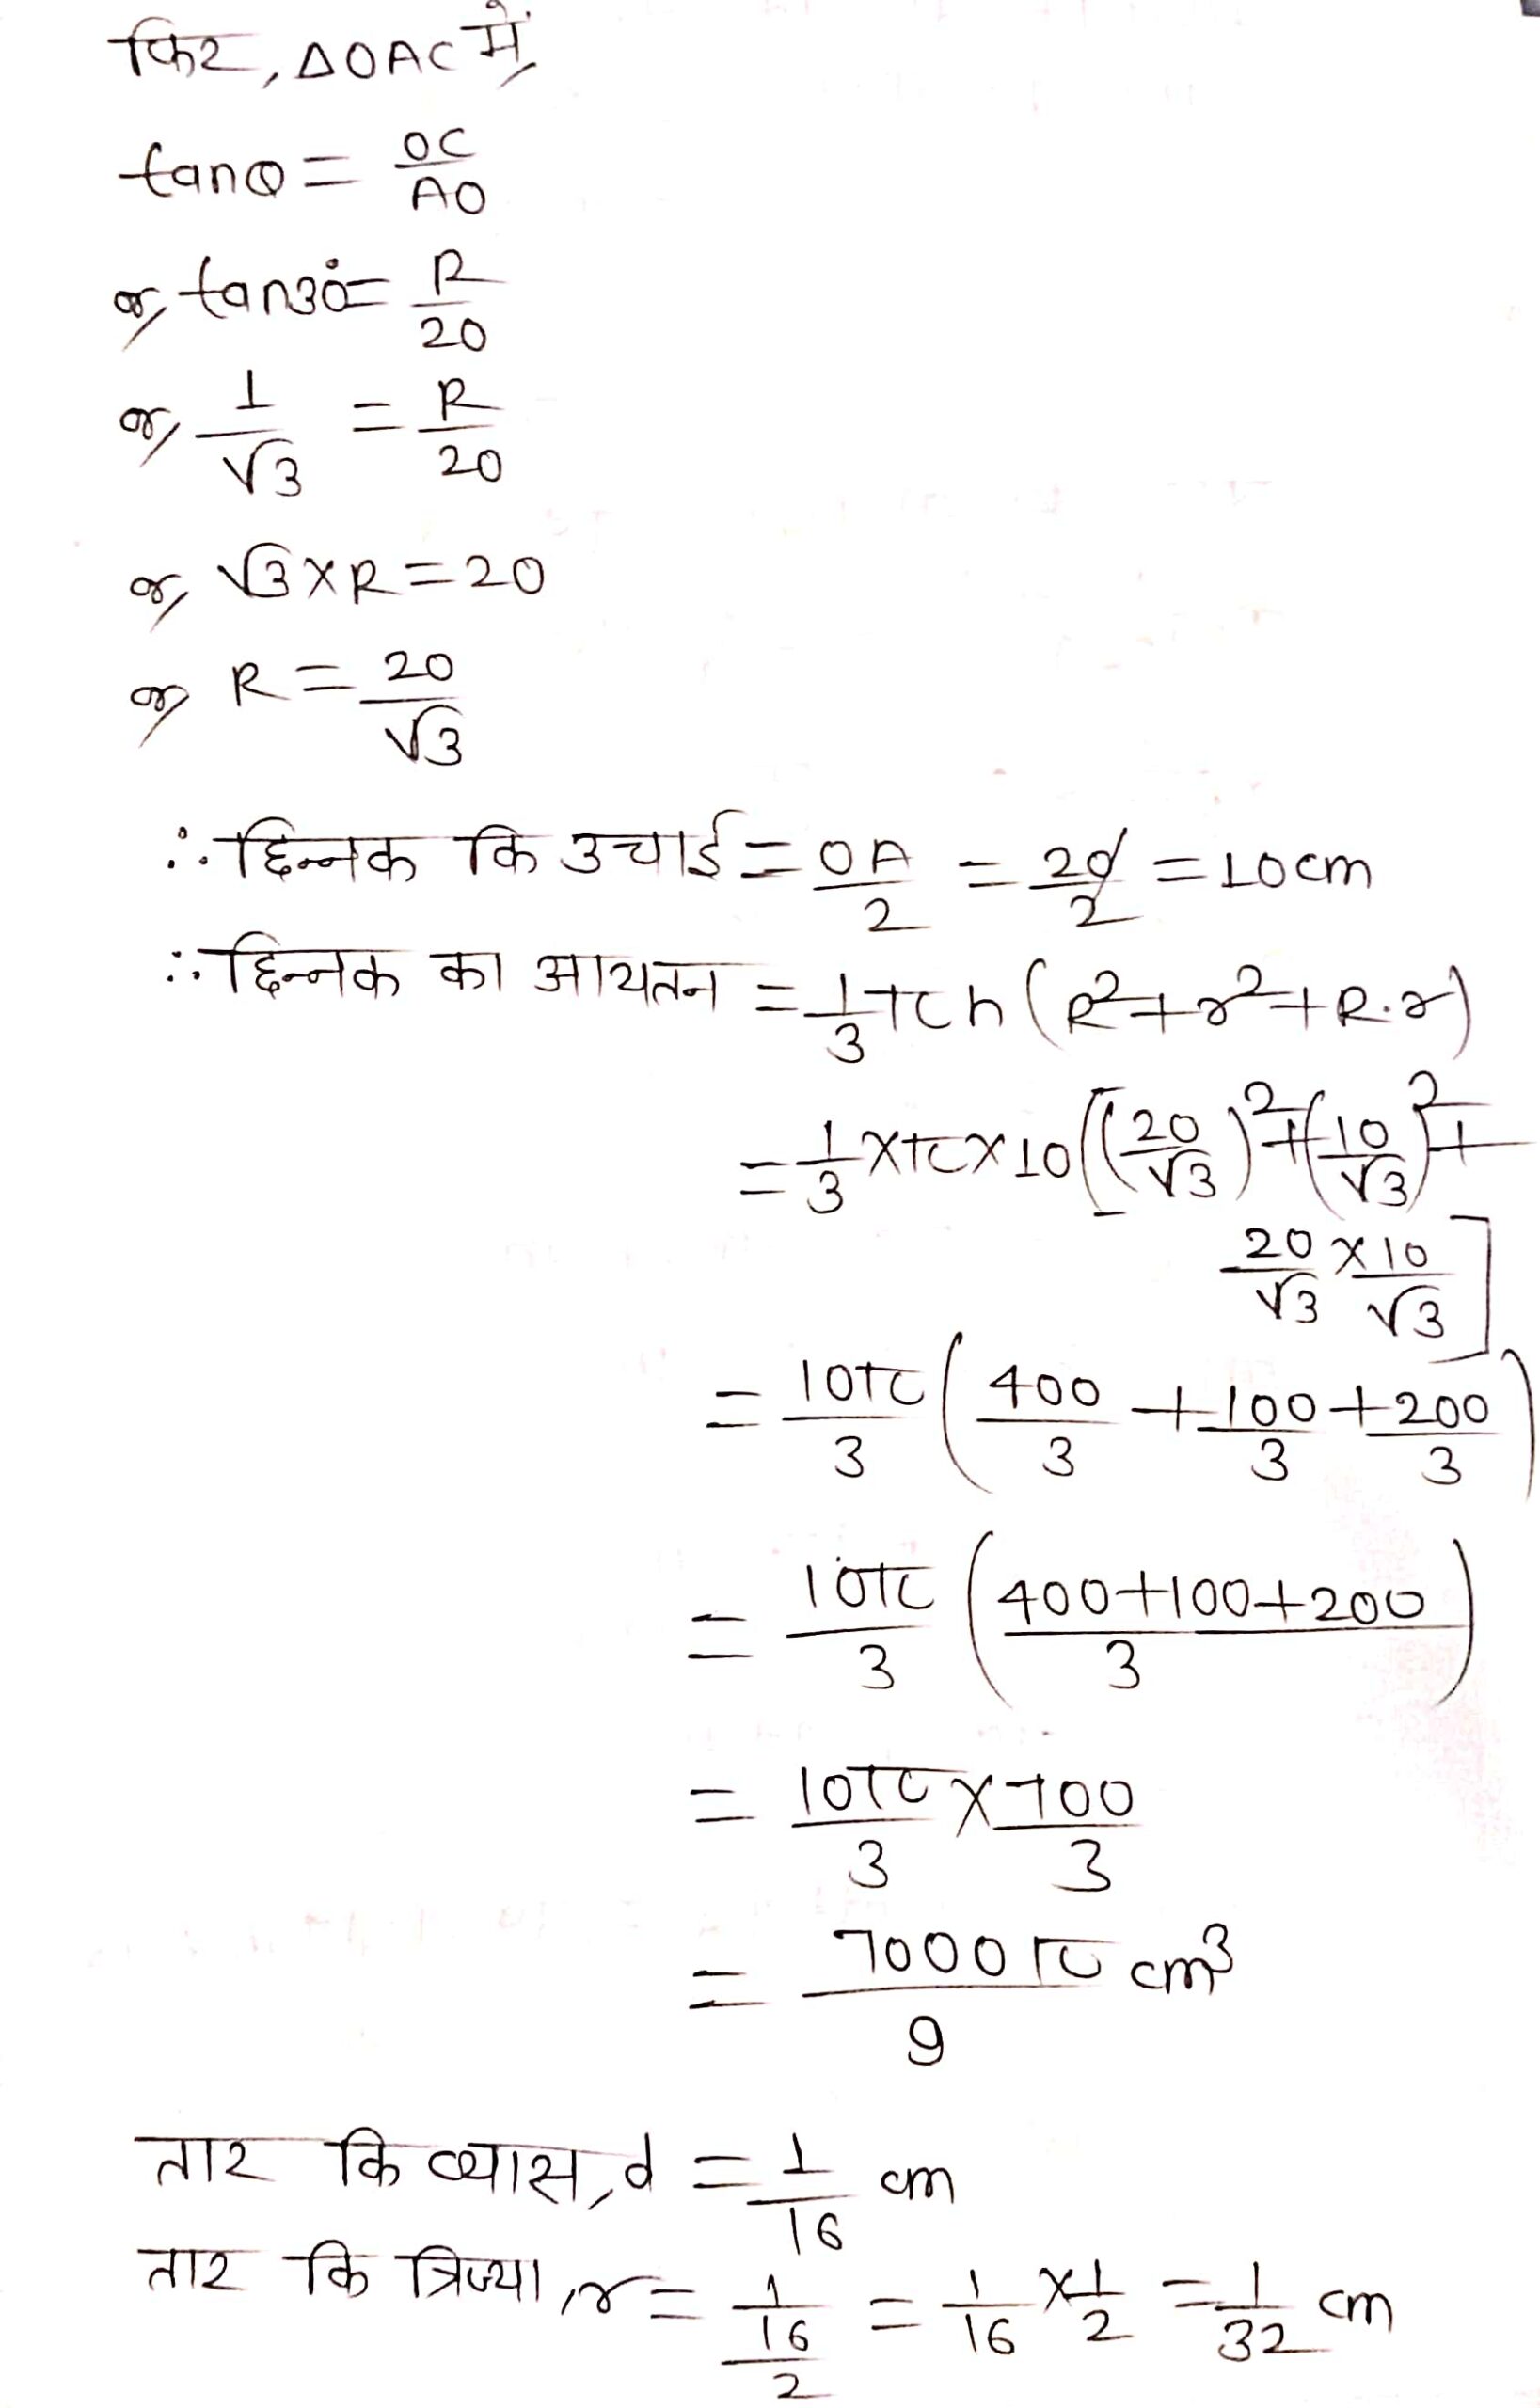 फिर, ΔOAC में,
tanθ = OC/AO
or, tan30° = R/20
or, 1/√3 = R/20
or, √3 × R = 20
or, R = 20/√3
∴ छिन्नक कि उचाई = OA/2 = 20/2 = 10cm
∴ छिन्नक का आयतन = 1/3 πh (R² + r² + R.r)
= 1/3 × π × 10 [(20/√3)² + (10/√3)² +
20/√3 × 10/√3]
= 10π/3 (400/3 + 100/3 + 200/3)
= 10π/3 (400+100+200/3)
= 10π/3 × 700/3
= 7000π/9 cm³
तार कि व्यास, d = 1/16 cm
तार कि त्रिज्या, r = 1/16/2 = 1/16 × 1/2 = 1/32 cm